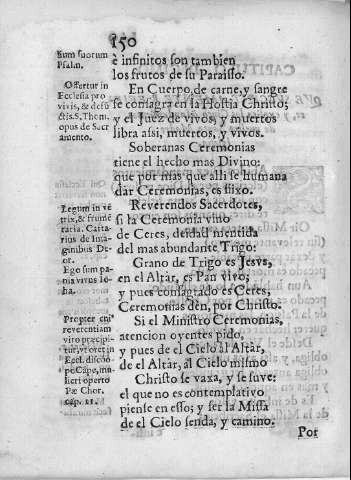 150
Sum suorum
Psalm.
è infinitos son tambien
los frutos de su Paraisso.
Offertur in
Ecclesia pro
vivis, & defũ
ctis. S. Thom.
opus de Sacr
amento.
En Cuerpo, de carne, y sangre
se consagra en la Hostia Christo;
y el Juez de vivos, y muertos
libra assi, muertos, y vivos.
Soberanas Ceremonias
tiene el hecho mas Divino:
que por mas que alli se humana
dar Ceremonias, es fixo.
Legum in ve
trix, & frumẽ
taria. Cartarius de Ima-
ginibus Deor.
Reverendos Sacerdotes,
si la Ceremonia vino
de Ceres, deidad mentida
del mas abundante Trigo:
Ego sum pa
nis vivus Ioha.
Grano de Trigo es Jesvs,
en el Altar, es Pan vivo;
y pues consagrado es Ceres,
Ceremonias den, por Christo.
Propter
reverentiam
viro præcipi-
tur, ut oret in
Eccl.
pe Cape, mu
lieri operto
Pæ Chor.
cap. 11.
Si el Ministro Ceremonias,
atencion oyentes pido,
y pues de el Cielo al Altar,
de el Altar, al Cielo mismo
Christo se vaxa, y se suve:
el que no es contemplativo
piense en esso; y ser la Missa
de el Cielo senda, y camino.
Por